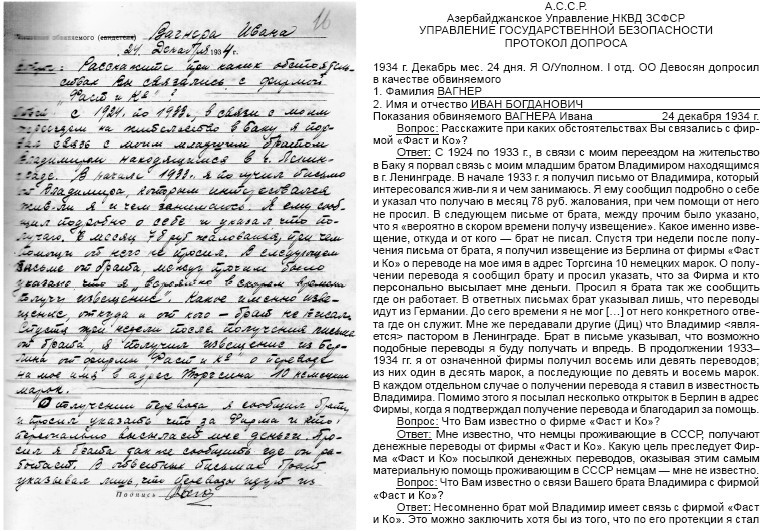 11
обвиняемого (свидетеля) Вагнера Ивана
24 Декабря 1934 г.
Вопрос: Расскажите при каких обстоятель-
ствах Вы связались с фирмой
„Фаст и Ко"?
Ответ: С 1924 по 1933 г., в связи с моим
переездом на жительство в Баку я пор-
вал связь с моим младшим братом
Владимиром находящимся в г. Ленин-
граде. В начале 1933 г. я получил письмо
от Владимира, которым интересовался
жив-ли я и чем занимаюсь. Я ему сооб-
щил подробно о себе и указал что по-
лучаю в месяц 78 руб жалования, при чем
помощи от него не просил. В следующем
письме от брата, между прочим было
указано что я „вероятно в скором времени
получу извещение". Какое именно изве-
щение, откуда и от кого — брат не писал.
Спустя три недели после получения письма
от брата, я получил извещение из Бер-
лина от фирмы „Фаст и Ко" о переводе
на мое имя в адрес Торгсина 10 немецких
марок.
О получении перевода я сообщил брату
и просил указать что за Фирма и кто
персонально высылает мне деньги. Про-
сил я брата так же сообщить где он ра-
ботает. В ответных письмах брат
указывал лишь, что переводы идут из
Подпись
А.С.С.Р.
Азербайджанское Управление НКВД ЗСФСР
УПРАВЛЕНИЕ ГОСУДАРСТВЕННОЙ БЕЗОПАСНОСТИ
ПРОТОКОЛ ДОПРОСА
1934 г. Декабрь мес. 24 дня. Я О/Уполном. I отд. ОО Девосян допросил
в качестве обвиняемого
1. Фамилия ВАГНЕР
2. Имя и отчество ИВАН БОГДАНОВИЧ
Показания обвиняемого ВАГНЕРА Ивана 24 декабря 1934 г.
Вопрос: Расскажите при каких обстоятельствах Вы связались с фир-
мой «Фаст и Ко»?
Ответ: С 1924 по 1933 г., в связи с моим переездом на жительство
в Баку я порвал связь с моим младшим братом Владимиром находящимся
в г. Ленинграде. В начале 1933 г. я получил письмо от Владимира, который
интересовался жив-ли я и чем занимаюсь. Я ему сообщил подробно о себе
и указал что получаю в месяц 78 руб. жалования, при чем помощи от него
не просил. В следующем письме от брата, между прочим было указано,
что я «вероятно в скором времени получу извещение». Какое именно изве-
щение, откуда и от кого — брат не писал. Спустя три недели после полу-
чения письма от брата, я получил извещение из Берлина от фирмы «Фаст
и Ко» о переводе на мое имя в адрес Торгсина 10 немецких марок. О полу-
чении перевода я сообщил брату и просил указать, что за Фирма и кто
персонально высылает мне деньги. Просил я брата так же сообщить
где он работает. В ответных письмах брат указывал лишь, что переводы
идут из Германии. До сего времени я не мог […] от него конкретного отве-
та где он служит. Мне же передавали другие (Диц) что Владимир <явля-
ется> пастором в Ленинграде. Брат в письме указывал, что возможно
подобные переводы я буду получать и впредь. В продолжении 1933–
1934 гг. я от означенной фирмы получил восемь или девять переводов;
из них один в десять марок, а последующие по девять и восемь марок.
В каждом отдельном случае о получении перевода я ставил в известность
Владимира. Помимо этого я посылал несколько открыток в Берлин в адрес
Фирмы, когда я подтверждал получение перевода и благодарил за помощь.
Вопрос: Что Вам известно о фирме «Фаст и Ко»?
Ответ: Мне известно, что немцы проживающие в СССР, получают
денежные переводы от фирмы «Фаст и Ко». Какую цель преследует Фир-
ма «Фаст и Ко» посылкой денежных переводов, оказывая этим самым
материальную помощь проживающим в СССР немцам — мне не известно.
Вопрос: Что Вам известно о связи Вашего брата Владимира с фирмой
«Фаст и Ко»?
Ответ: Несомненно брат мой Владимир имеет связь с фирмой «Фаст
и Ко». Это можно заключить хотя бы из того, что по его протекции я стал